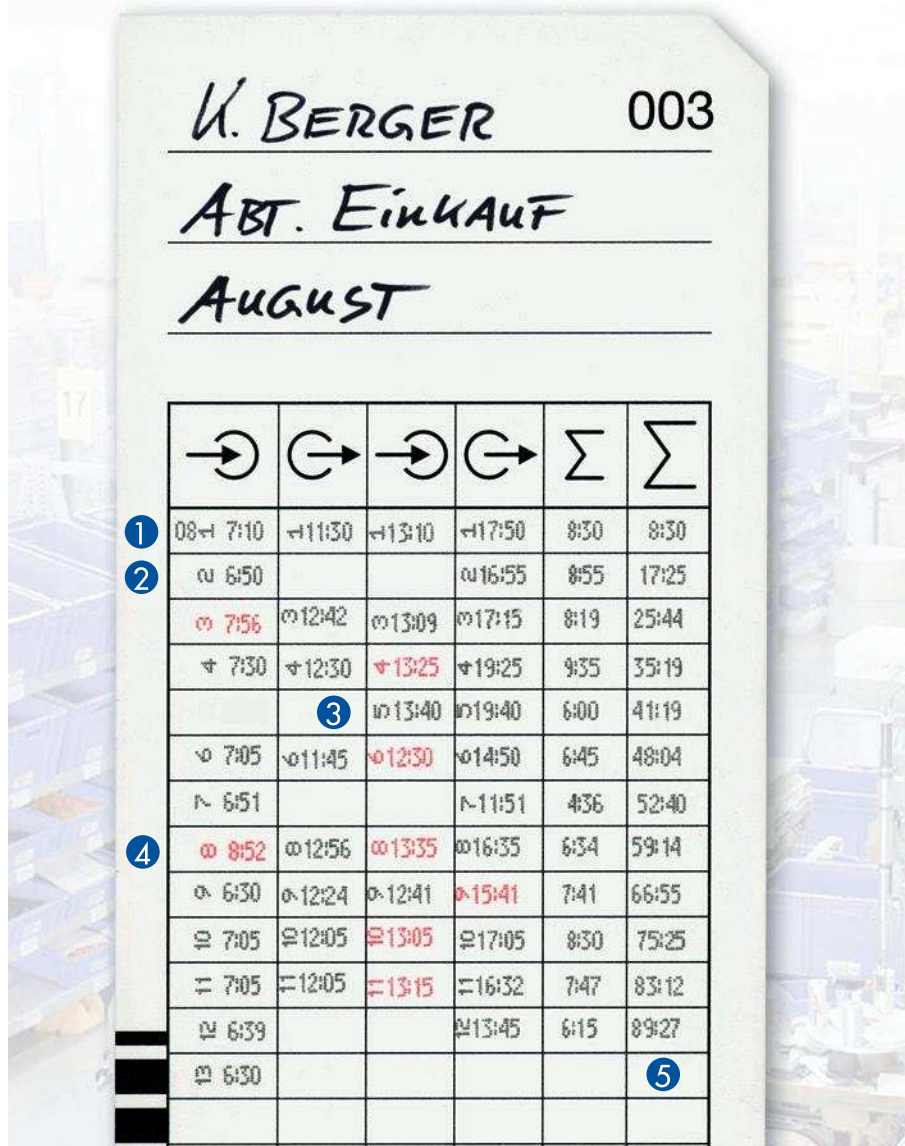 K. BERGER 003
ABT. EINKAUF
AUGUST
∑ ∑
1 08 1 7:10 1 11:30 1 13:10 1 17:50 8:30 8:30
2 2 6:50 2 16:55 8:55 17:25
3 7:56 3 12:42 3 13:09 3 17:15 8:19 25:44
4 7:30 4 12:30 4 13:25 4 19:25 9:35 35:19
3 5 13:40 5 19:40 6:00 41:19
6 7:05 6 11:45 6 12:30 6 14:50 6:45 48:04
7 6:51 7 11:51 4:36 52:40
4 8 8:52 8 12:56 8 13:35 8 16:35 6:34 59:14
9 6:30 9 12:24 9 12:41 9 15:41 7:41 66:55
10 7:05 10 12:05 10 13:05 10 17:05 8:30 75:25
11 7:05 11 12:05 11 13:15 11 16:32 7:47 83:12
12 6:39 12 13:45 6:15 89:27
13 6:30 5
17